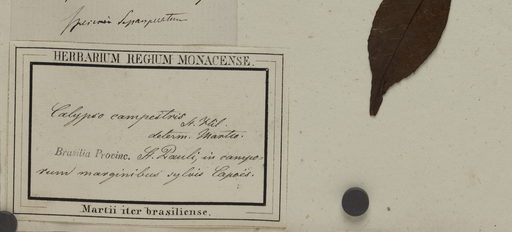 HERBARIUM REGIUM MONACENSE.
Calypso campestris St. Hil.
determ. Martio.
Brasilia Provinc. St. Pauli, in campo-
rum marginibus sylvis Capoës.
Martii iter brasiliense.